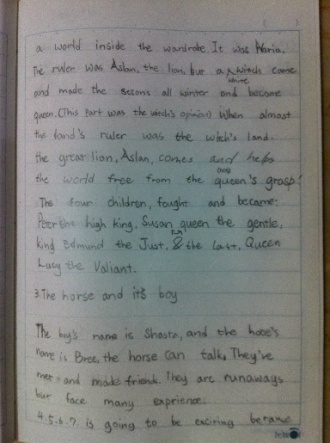 a world inside the wardrobe It was Naria.
The ruler was Aslan, the lion, but a white witch came
and made the seasons all winter and became
queen. (This part was the witch's opinion) When almost
the land's ruler was the witch's land.
the great lion, Aslan, comes and helps
the world free from the (bad) queen's grasp!
The four children, fought and became:
Peter the high king, Susan queen the gentle,
king Edmund the Just, & the last, Queen
Lucy the Valiant.
3. The horse and it's boy
The boy's name is Shasta, and the horse's
name is Bree, the horse can talk. They've
met and made friends. They are runaways
but face many exprience.
4. 5. 6. 7. is going to be exciting because